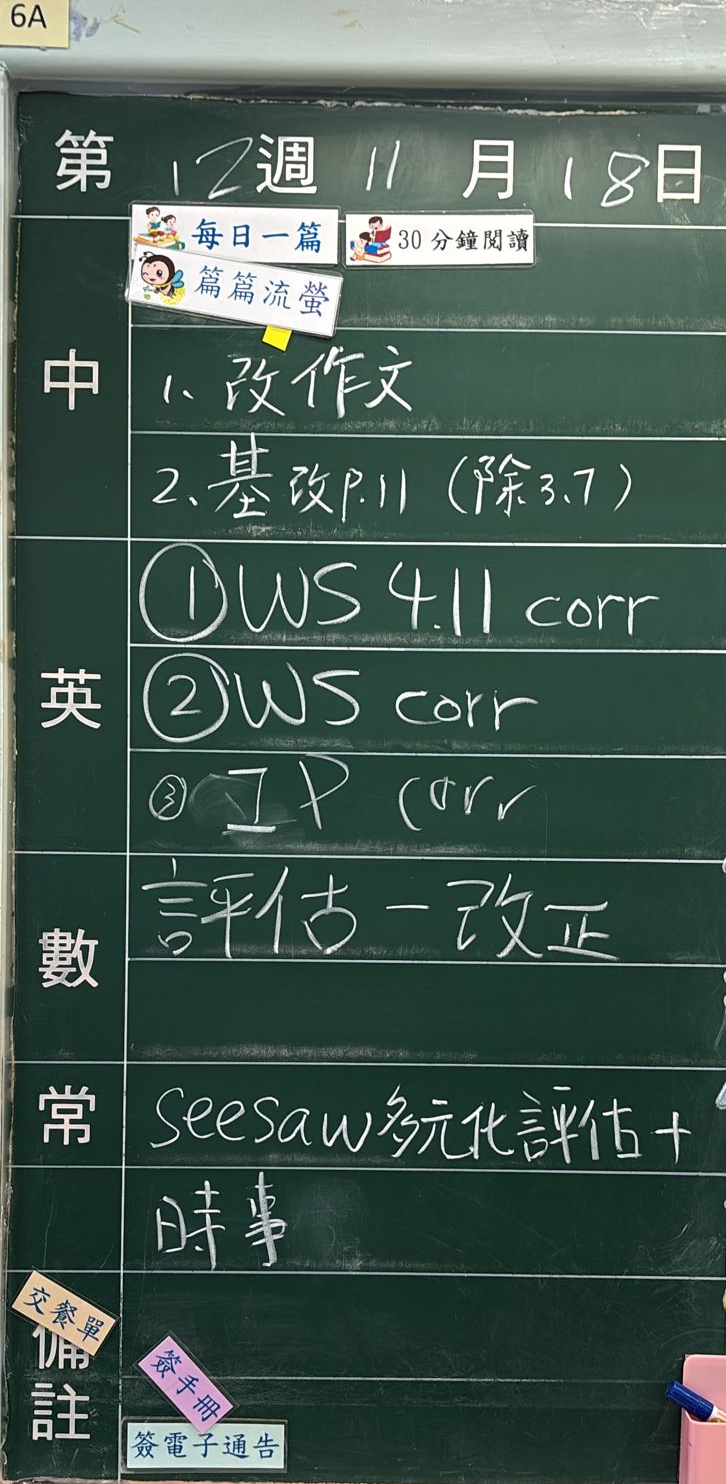 6A
第 12 週 11 月 18 日
每日一篇 30 分鐘閱讀
篇篇流螢
中
1. 改作文
2. 基改P.11 (除3.7)
英
① WS 4.11 corr
② WS corr
③ IP corr
數
評估一改正
常
seesaw多元化評估+
時事
交餐單
備註
簽手冊
簽電子通告